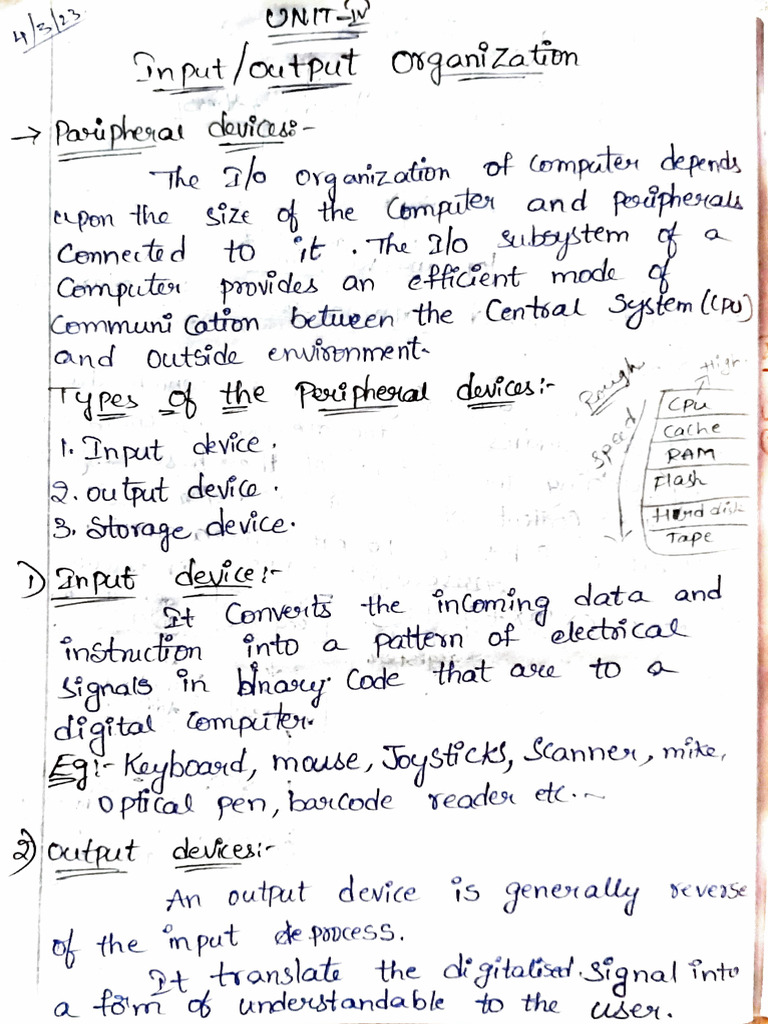 4/3/23
UNIT-IV
Input/output Organization
→ Paripheral devices:-
The I/o organization of computer depends
upon the size of the Computer and peripherals
Connected to it. The I/o subsystem of a
Computer provides an efficient mode of
Communication between the Central System (CPU)
and outside environment.
Types of the Peripheral devices:-
1. Input device.
2. output device.
3. Storage device.
Rough
Speed
High
CPU
Cache
RAM
Flash
Hard disk
Tape
1) Input device:-
It Converts the incoming data and
instruction into a pattern of electrical
signals in binary code that are to a
digital computer.
Eg:- Keyboard, mouse, Joysticks, Scanner, mike,
optical pen, barcode reader etc.~
2) output devices:-
An output device is generally reverse
of the input de process.
It translate the digitalised signal into
a form of understandable to the user.